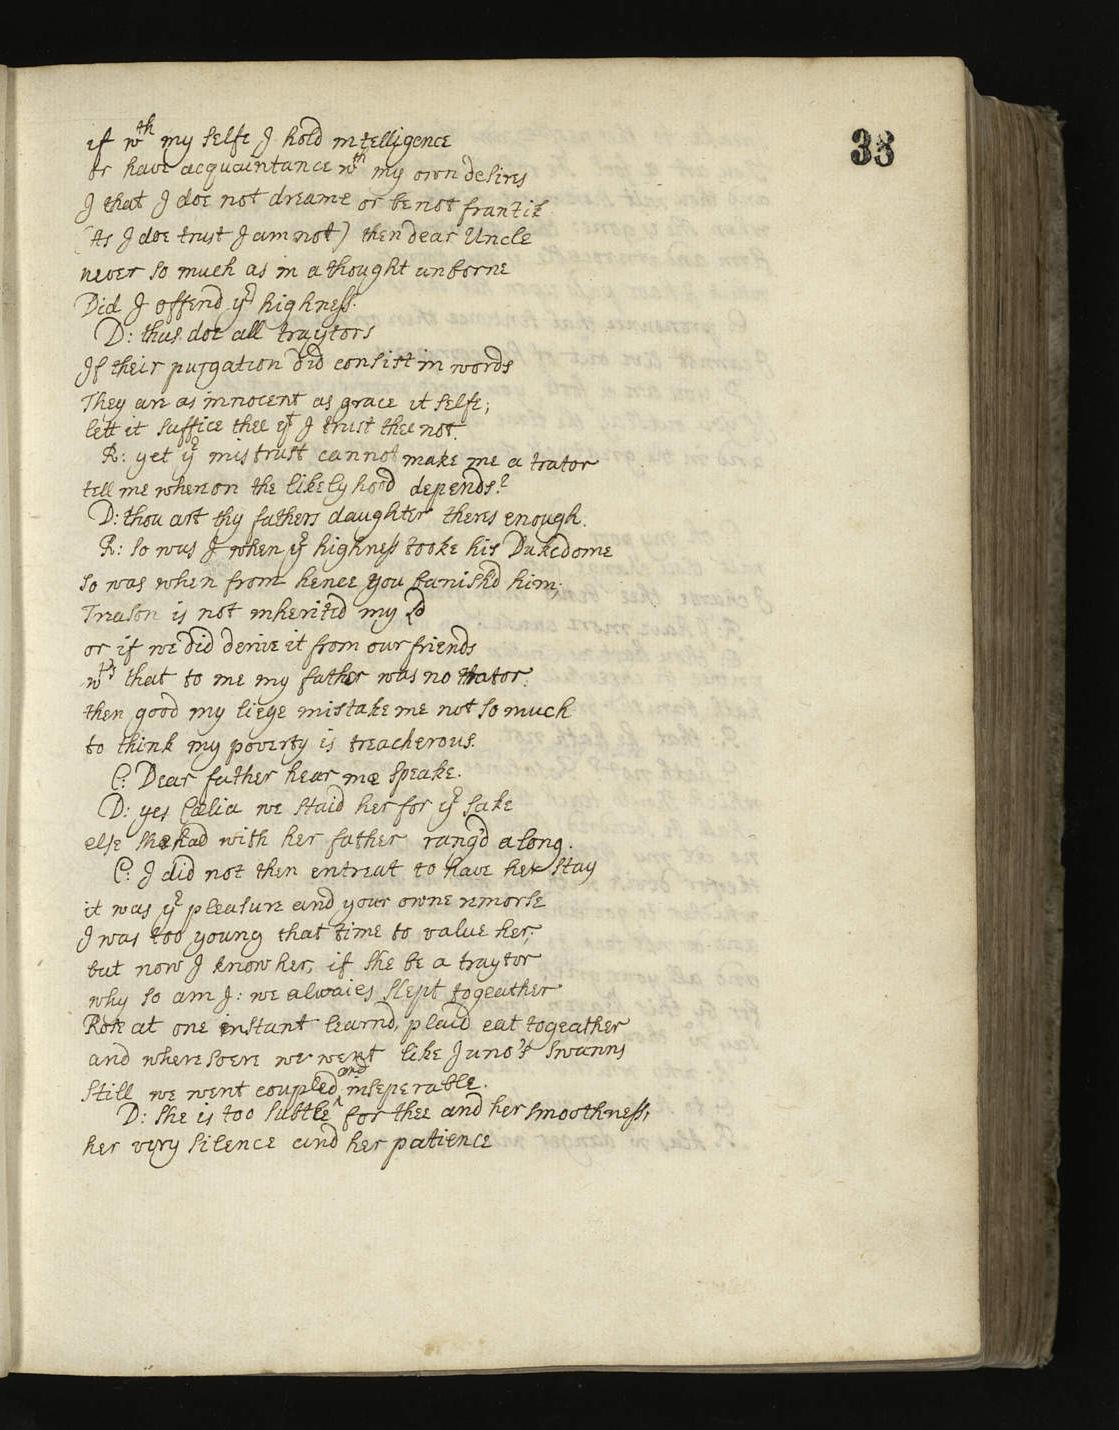 33
if wth my selfe I hold intelligence
or have acquaintance wth my own desires
I that I doe not dreame or be not frantik
(As I doe trust I am not) then dear Uncle
never so much as in a thought unborne
Did I offend yr highness.
D: thus doe all traytors
If their purgation did consist in words
They are as innocent as grace it selfe;
lett it suffice thee yt I trust thee not.
R: yet yr mistrust cannot make me a trator
tell me whereon the likelyhood depends?
D: thou art thy fathers daughter theres enough.
R: so was I when yr highness tooke his Dukedome
so was when from hence you banishd him;
Treason is not inherited my Ld
or if we did derive it from our friends
wts that to me my father was no trator.
then good my liege mistake me not so much
to think my poverty is treacherous.
C: Dear father hear me speake.
D: yes Cælia we staid her for yr sake
else she had with her father rang'd along.
C: I did not then entreat to have her stay
it was yr pleasure and your owne remorse
I was too young that time to value her;
but now I know her, if she be a traytor
why so am I: we alwaies slept togeather
Rose at one instant learnd, plaid eat togeather
and wheresoere we went like Juno's swanns
still we went coupled and inseperable.
D: she is too subtle for thee and her smoothness;
her very silence and her patience